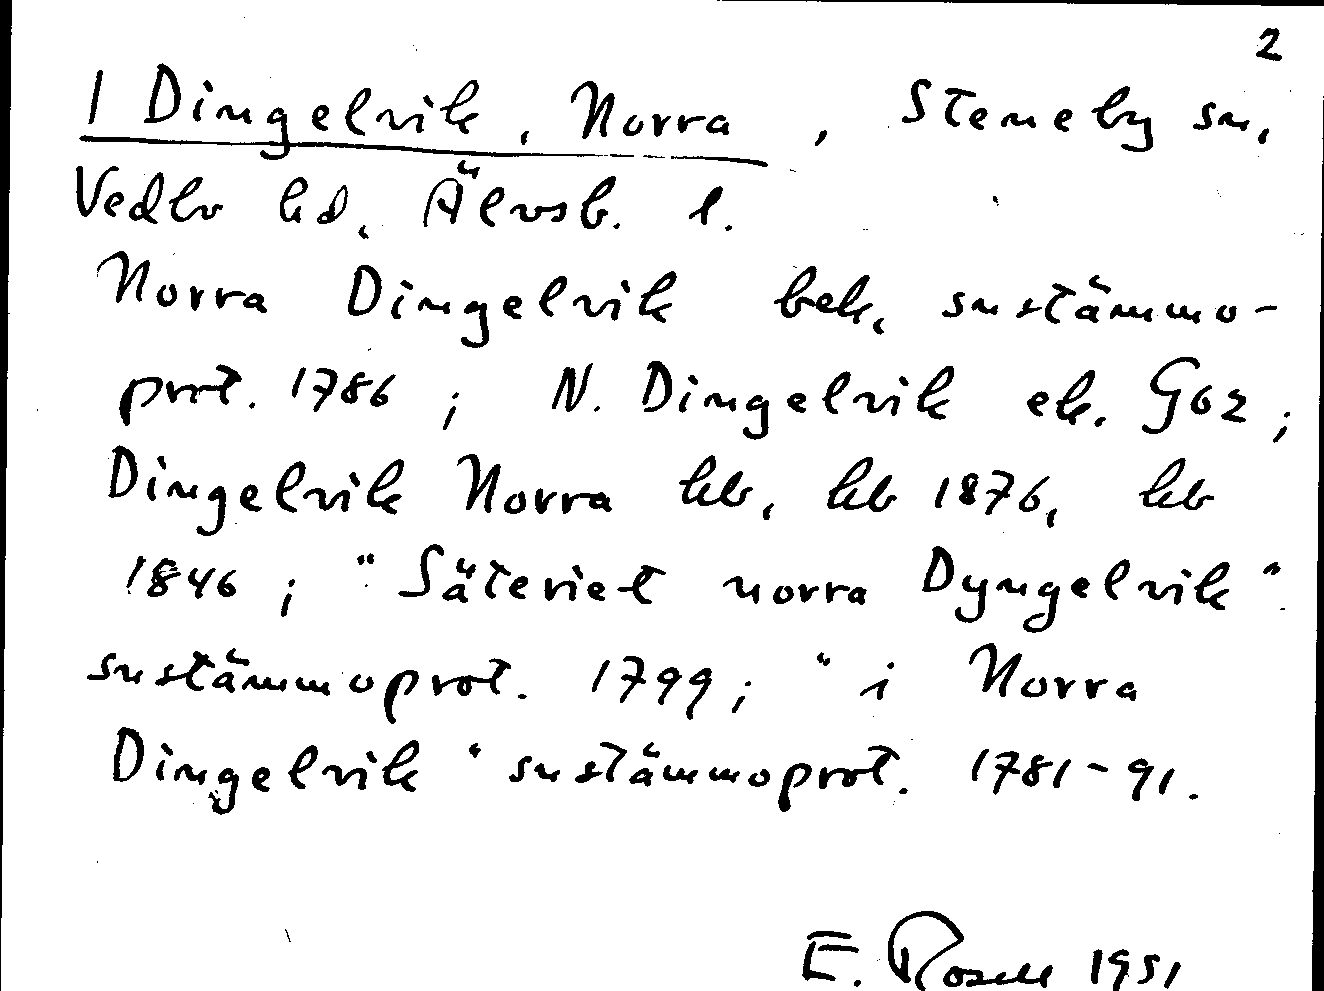 2
1 Dingelvik, Norra, Steneby sn,
Vedbo hd, Älvsb. l.
Norra Dingelvik bek, snstämmo-
prot. 1786; N. Dingelvik ek. G62;
Dingelvik Norra kb, kb 1876, kb
1846; "Säteriet norra Dyngelvik"
snstämmoprot. 1799; "i Norra
Dingelvik" snstämmoprot. 1781-91.
E. Rosell 1951